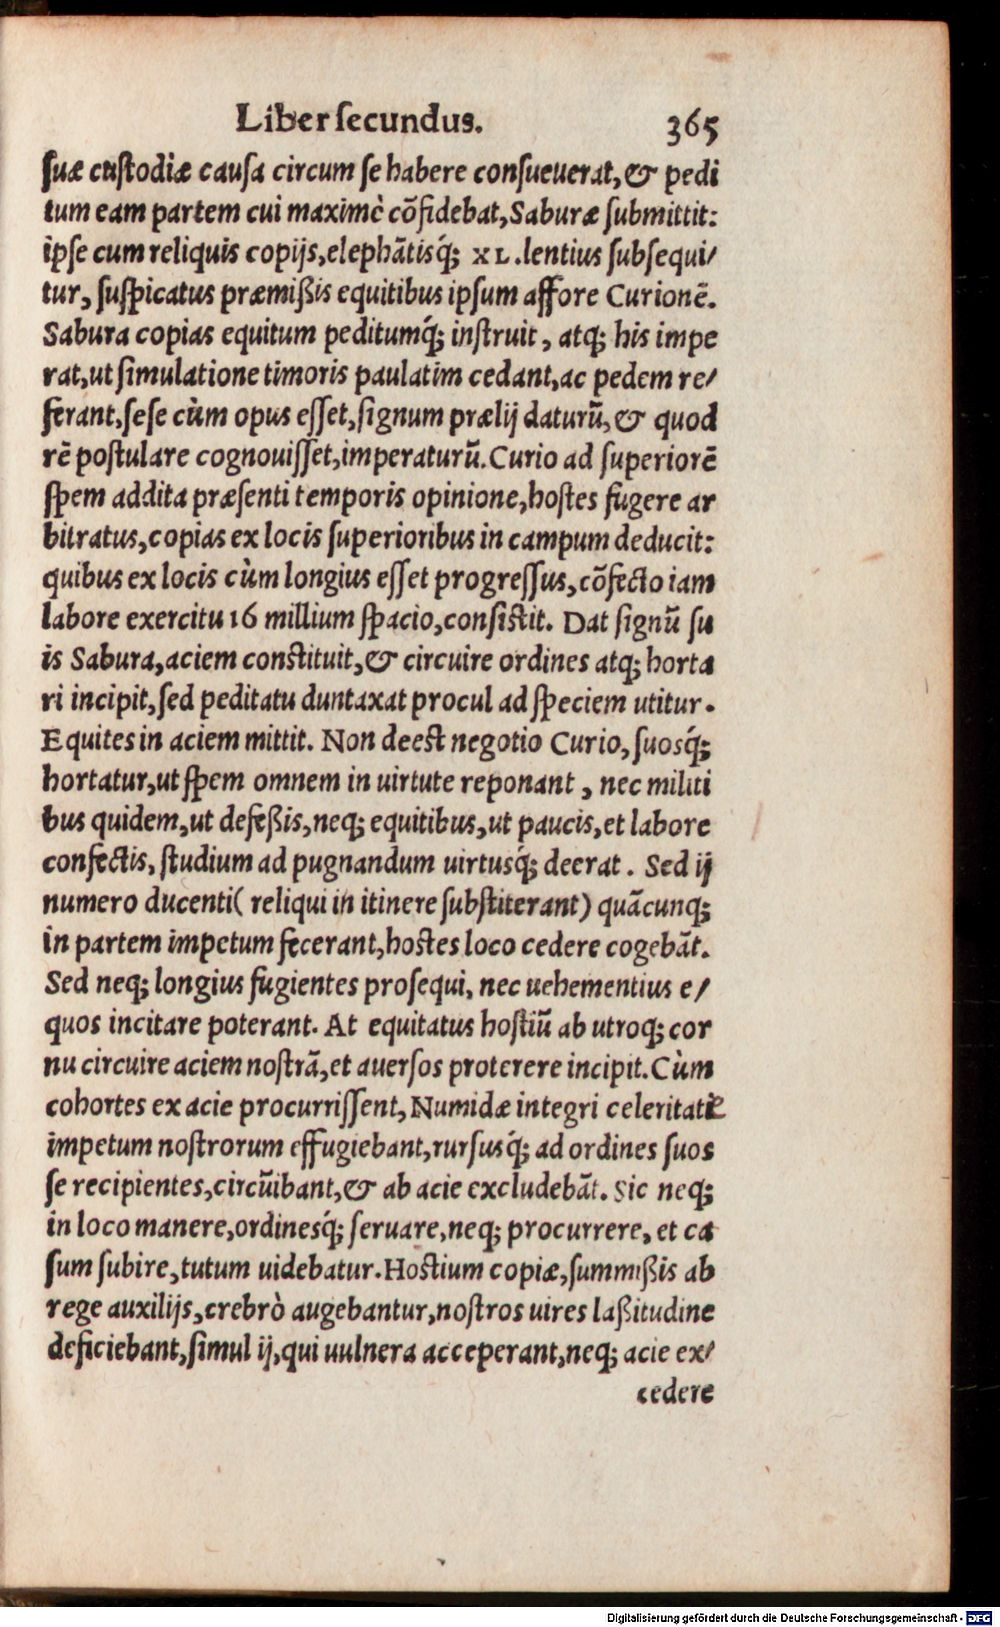 Liber ſecundus. 365
ſuæ cuſtodiæ cauſa circum ſe habere conſueuerat, & pedi
tum eam partem cui maximè cõfidebat, Saburæ ſubmittit:
ipſe cum reliquis copijs, elephãtisq́; XL. lentius ſubſequi/
tur, ſuſpicatus præmißis equitibus ipſum affore Curionẽ.
Sabura copias equitum peditumq́; inſtruit, atq; his impe
rat, ut ſimulatione timoris paulatim cedant, ac pedem re/
ferant, ſeſe cùm opus eſſet, ſignum prælij daturũ, & quod
rẽ poſtulare cognouiſſet, imperaturũ. Curio ad ſuperiorẽ
ſpem addita præſenti temporis opinione, hoſtes fugere ar
bitratus, copias ex locis ſuperioribus in campum deducit:
quibus ex locis cùm longius eſſet progreſſus, cõfecto iam
labore exercitu 16 millium ſpacio, conſiſtit. Dat ſignũ ſu
is Sabura, aciem conſtituit, & circuire ordines atq; horta
ri incipit, ſed peditatu duntaxat procul ad ſpeciem utitur.
Equites in aciem mittit. Non deeſt negotio Curio, ſuosq́;
hortatur, ut ſpem omnem in uirtute reponant, nec militi
bus quidem, ut defeßis, neq; equitibus, ut paucis, et labore
confectis, ſtudium ad pugnandum uirtusq́; deerat. Sed ij
numero ducenti( reliqui in itinere ſubſtiterant) quãcunq;
in partem impetum fecerant, hoſtes loco cedere cogebãt.
Sed neq; longius fugientes proſequi, nec uehementius e/
quos incitare poterant. At equitatus hoſtiũ ab utroq; cor
nu circuire aciem noſtrã, et auerſos proterere incipit. Cùm
cohortes ex acie procurriſſent, Numidæ integri celeritate
impetum noſtrorum effugiebant, rurſusq́; ad ordines ſuos
ſe recipientes, circũibant, & ab acie excludebãt. Sic neq;
in loco manere, ordinesq́; ſeruare, neq; procurrere, et ca
ſum ſubire, tutum uidebatur. Hoſtium copiæ, ſummißis ab
rege auxilijs, crebrò augebantur, noſtros uires laßitudine
deficiebant, ſimul ij, qui uulnera acceperant, neq; acie ex/
cedere
Digitalisierung gefördert durch die Deutsche Forschungsgemeinschaft - DFG